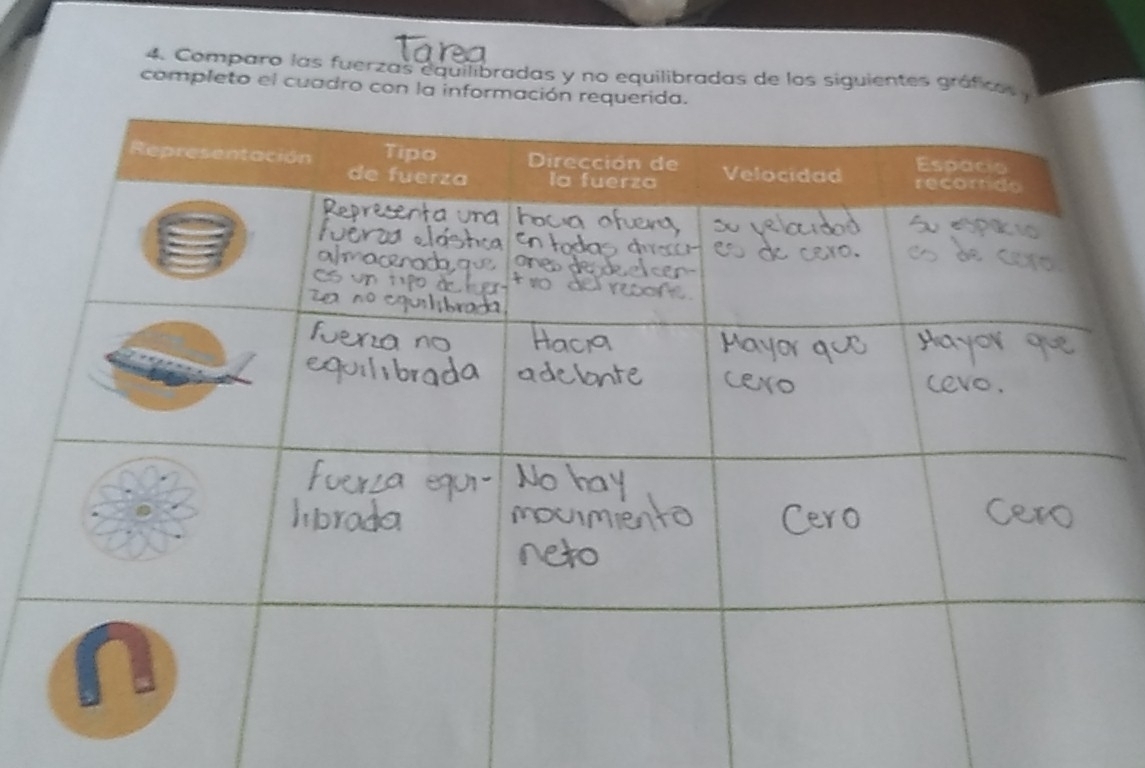 Tarea
4. Comparo las fuerzas equilibradas y no equilibradas de los siguientes gráficos y
completo el cuadro con la información requerida.
Representación
Tipo
de fuerza
Dirección de
la fuerza
Velocidad
Espacio
recorrido
Representa una
fuerza elástica
almacenada, que
es un tipo de fuer-
za no equilibrada
hacia afuera,
en todas direcci-
ones desde el cen-
tro del resorte.
su velocidad
es de cero.
Su espacio
es de cero
fuerza no
equilibrada
Hacia
adelante
Mayor que
cero
Mayor que
cero.
fuerza equi-
librada
No hay
movimiento
neto
Cero
Cero